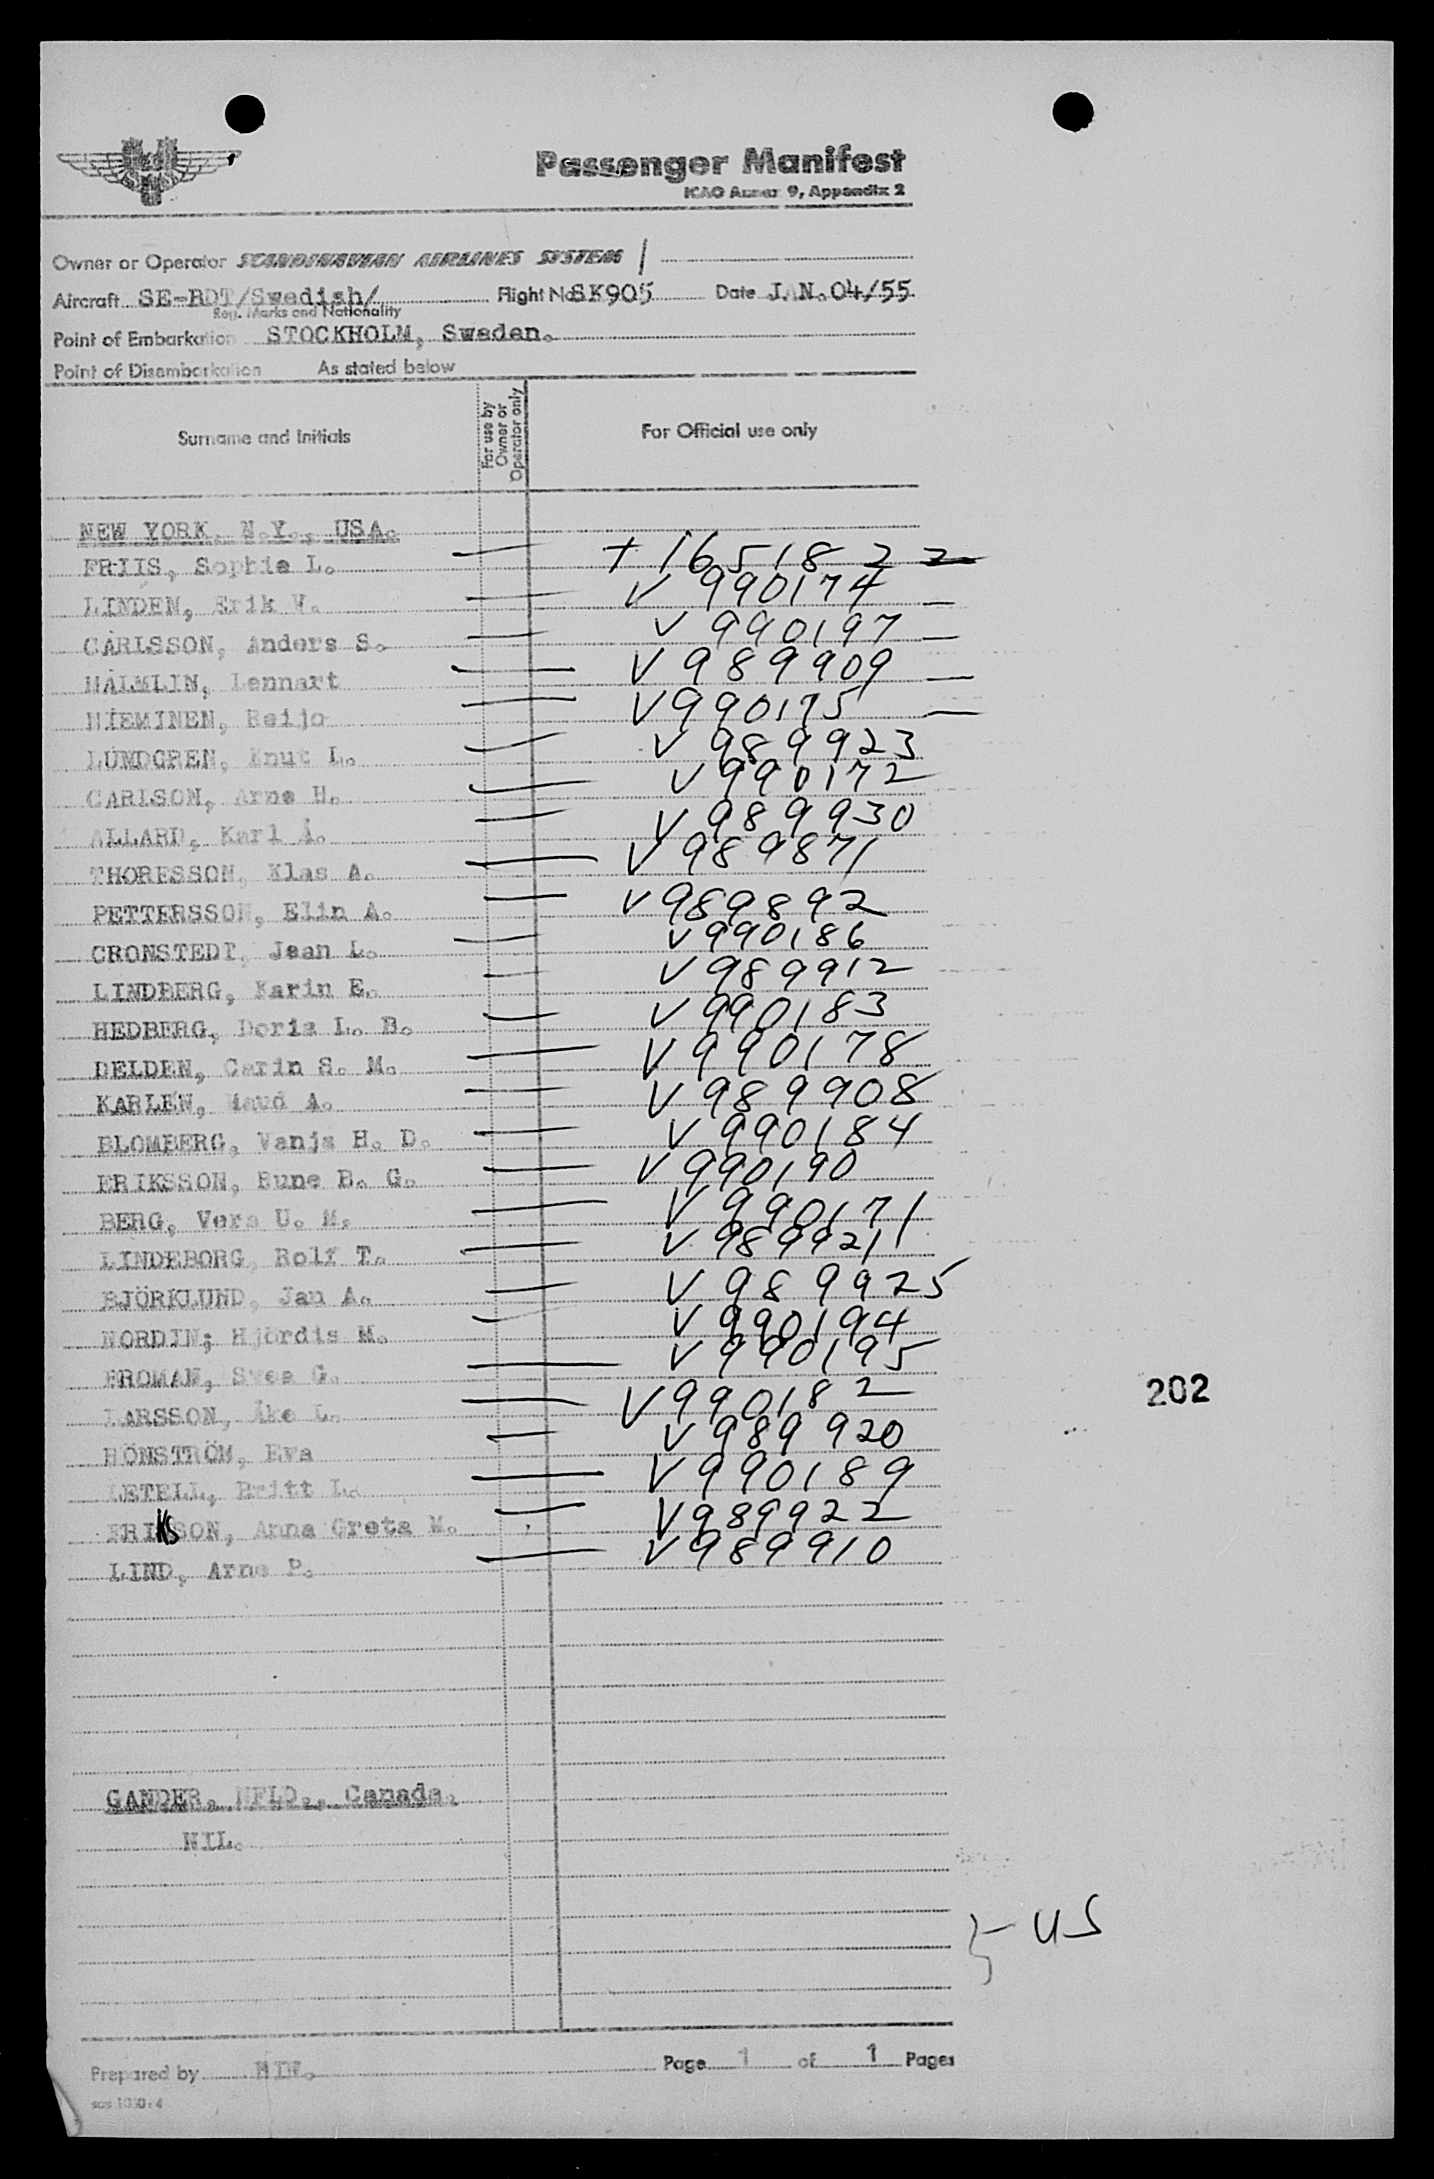 Passenger Manifest
ICAO Annex 9, Appendix 2
Owner or Operator SCANDINAVIAN AIRLINES SYSTEM /
Aircraft SE-BDT/Swedish/ Flight No SK905 Date JAN. 04/55
Reg. Marks and Nationality
Point of Embarkation STOCKHOLM, Sweden.
Point of Disembarkation As stated below
Surname and Initials For use by Owner or Operator only For Official use only
NEW YORK, N.Y., USA.
FRIIS, Sophie L. + 1651822
LINDEN, Erik W. V 990174
CARLSSON, Anders S. V 990197
HALMLIN, Lennart V 989909
NIEMINEN, Reijo V 990175
LUNDGREN, Knut L. V 989923
CARLSON, Arne H. V 990172
ALLARD, Karl Å. V 989930
THORESSON, Klas A. V 989871
PETTERSSON, Elin A. V 989892
CRONSTEDT, Jean L. V 990186
LINDBERG, Karin E. V 989912
HEDBERG, Doris L. B. V 990183
DELDEN, Carin S. M. V 990178
KARLEN, Maud A. V 989908
BLOMBERG, Vanja H. D. V 990184
ERIKSSON, Rune B. G. V 990190
BERG, Vera U. M. V 990171
LINDEBORG, Rolf T. V 989921
BJÖRKLUND, Jan A. V 989925
NORDIN; Hjördis M. V 990194
FROMAN, Svea G. V 990195
LARSSON, Åke L. V 990182
HÖNSTRÖM, Eva V 989920
LETELL, Britt L. V 990189
ERIKSSON, Anna Greta M. V 989922
LIND, Arne P. V 989910
202
GANDER, NFLD., Canada.
NIL.
US
Prepared by Page 1 of 1 Pages